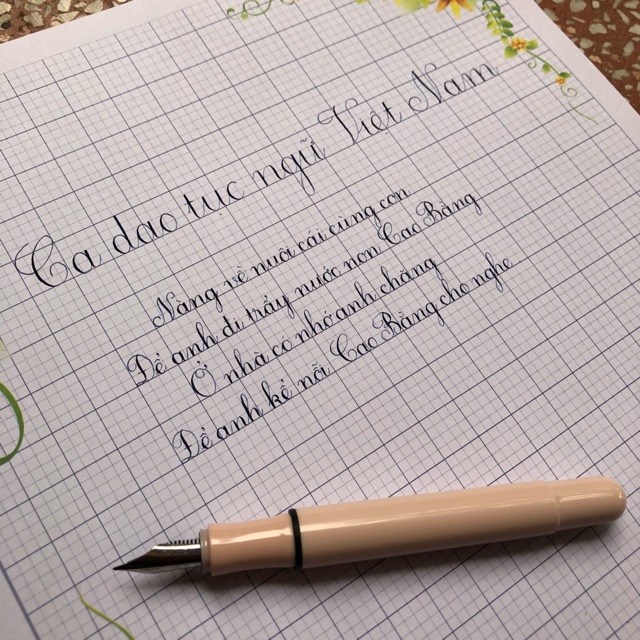 Ca dao tục ngữ Việt Nam
Nàng về nuôi cái cùng con
Để anh đi trẩy nước non Cao Bằng
Ở nhà có nhớ anh chăng
Để anh kể nỗi Cao Bằng cho nghe